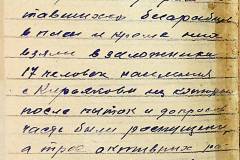 тавшихся безоружн
в плен и кроме них
взяли в заложники
17 человек населения
с Курьяково из которых
после пыток и допросов
часть были расстреляны
а трое активных ра